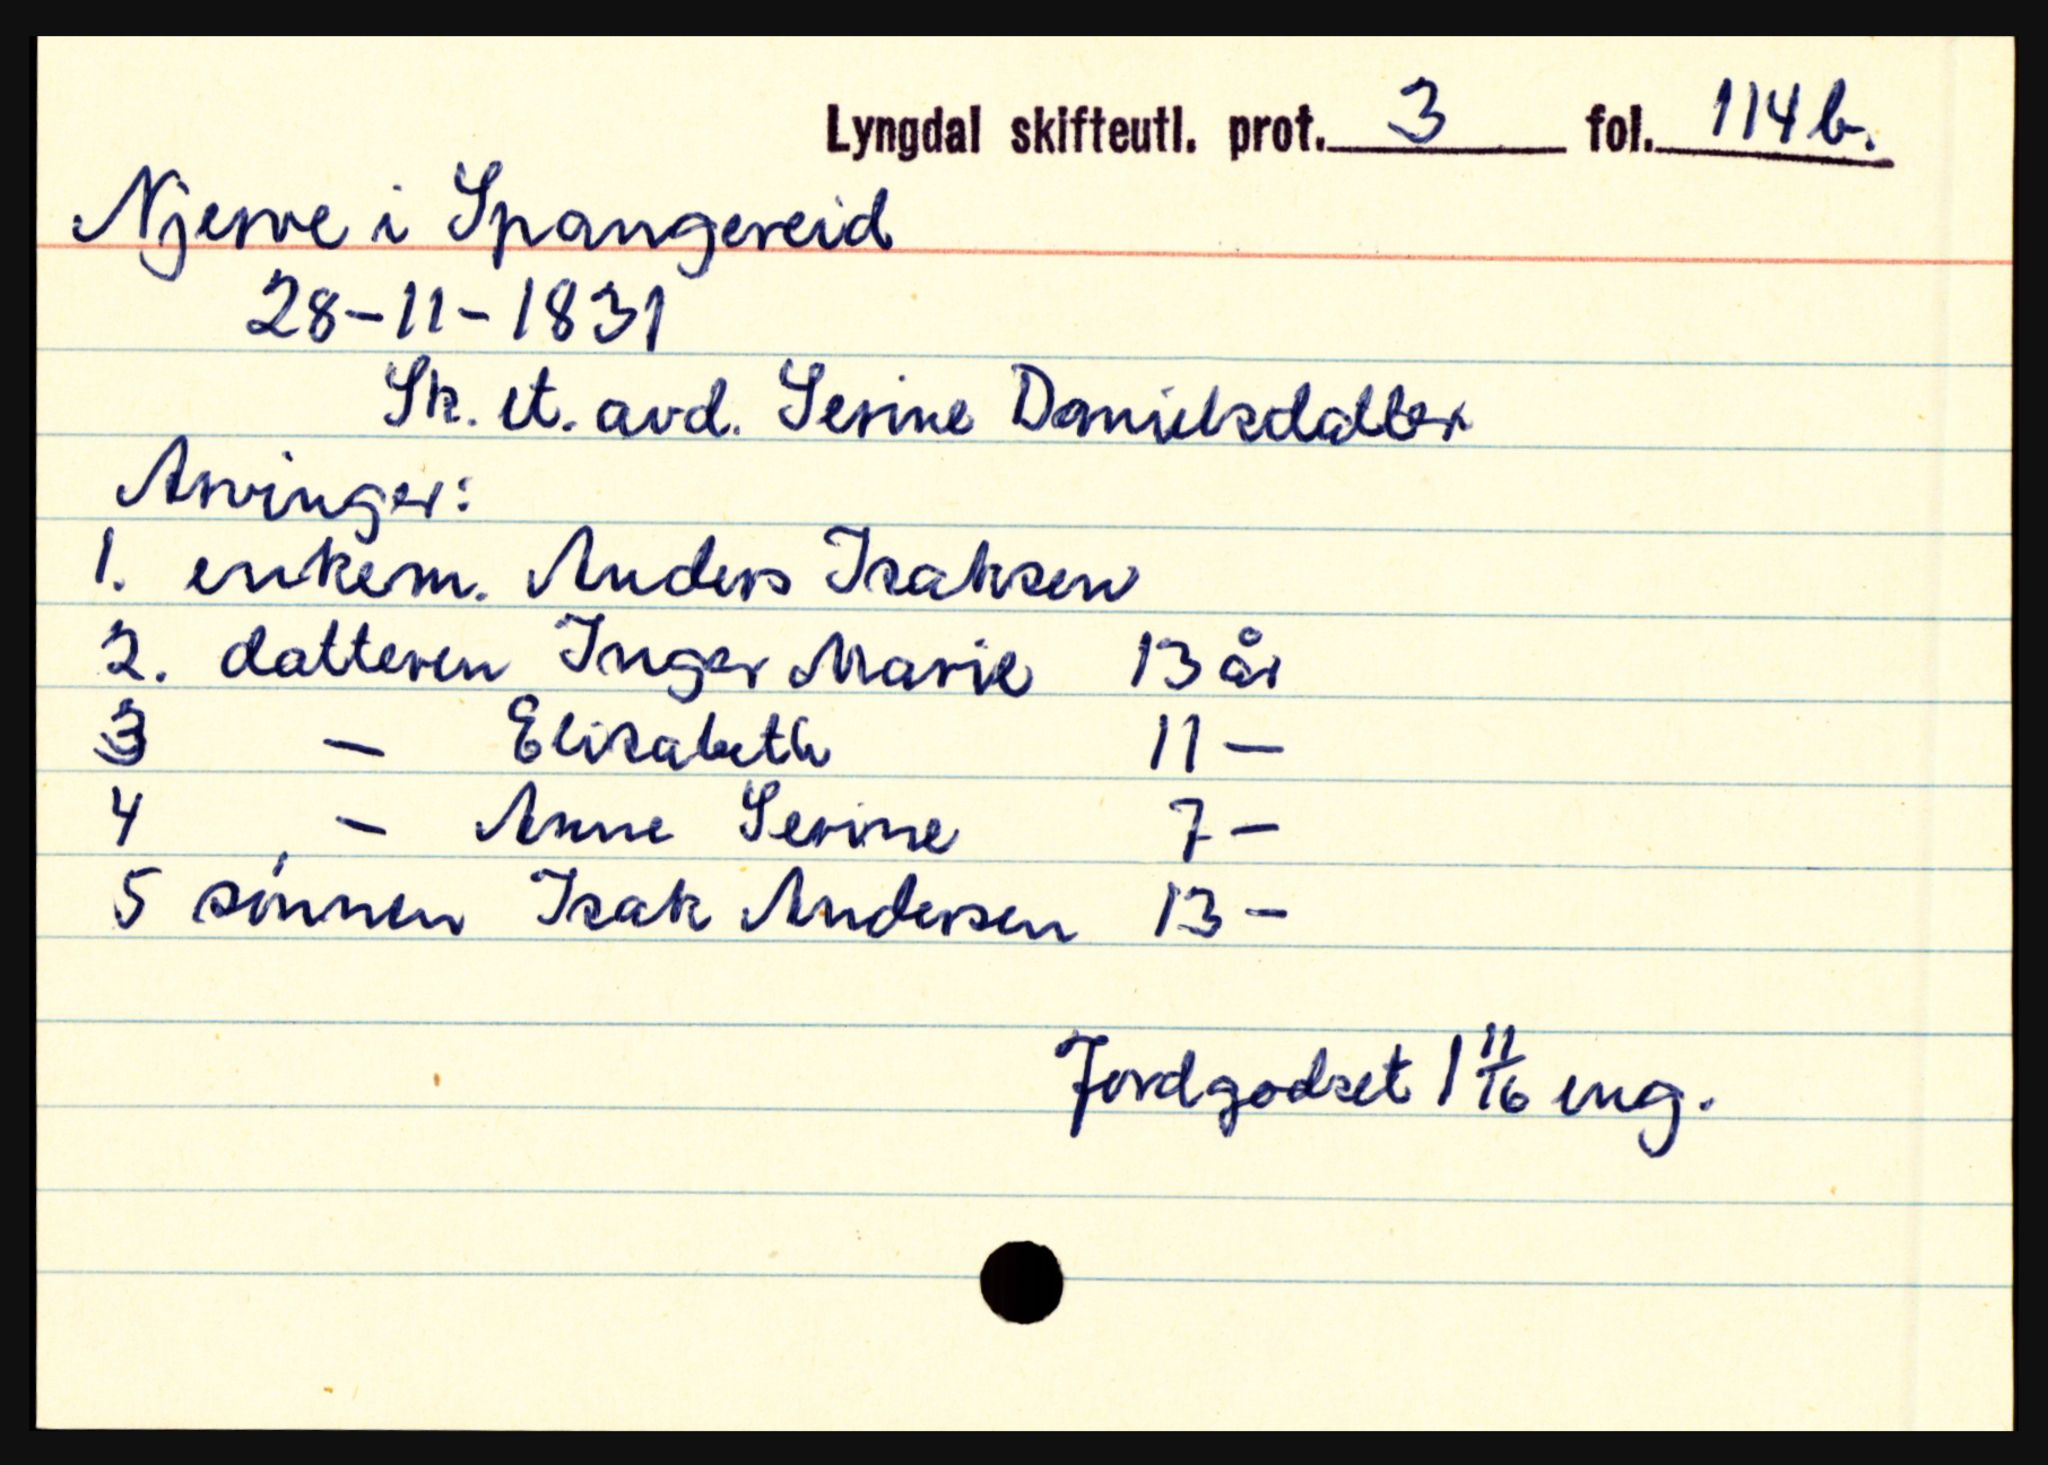 Lyngdal skifteutl. prot. 3 fol. 114b.
Njerve i Spangereid
28-11-1831
Sk. et. avd. Serine Danielsdatter
Arvinger:
1. enkem. Anders Isaksen
2. datteren Inger Marie 13 år
3 — Elisabeth 11 —
4 — Anne Serine 7 —
5 sönnen Isak Andersen 13 —
Jordgodset 1 11/16 eng.